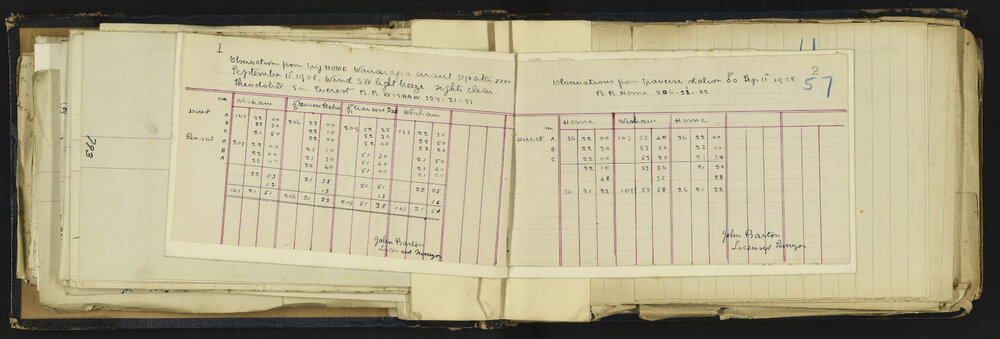 1
Observations from Trig HOME Wairarapa circuit Opaki
September 11 1908. Wind S.W. light breeze sights clear
Theodolite 5 in Everest R.R. WISHAW 327-21-51
m Wishaw Traverse Station Traverse Stat Wishaw
Direct A 147 22 00 206 22 00 209 52 25 147 22 30
B 22 30 22 10 52 30 22 30
C 21 50 22 00 52 00 22 20
C 207 22 00 21 10 51 30 21 50
B 22 00 21 30 51 40 21 40
A 22 00 20 40 51 00 21 20
22 03 21 38 51 51 22 05
12 13 13 12
147 21 51 206 21 22 209 51 38 147 21 54
John Barton
Licensed Surveyor
793
2
57
Observations from Traverse Station Sep 11 1908
R.R. Home 206-21-22
m Home Wishaw Home
Direct A 26 22 00 107 53 40 26 22 00
B 22 00 53 50 22 00
C 22 30 53 20 21 30
22 10 53 36 21 50
48 38 28
26 21 22 107 52 58 26 21 22
John Barton
Licensed Surveyor